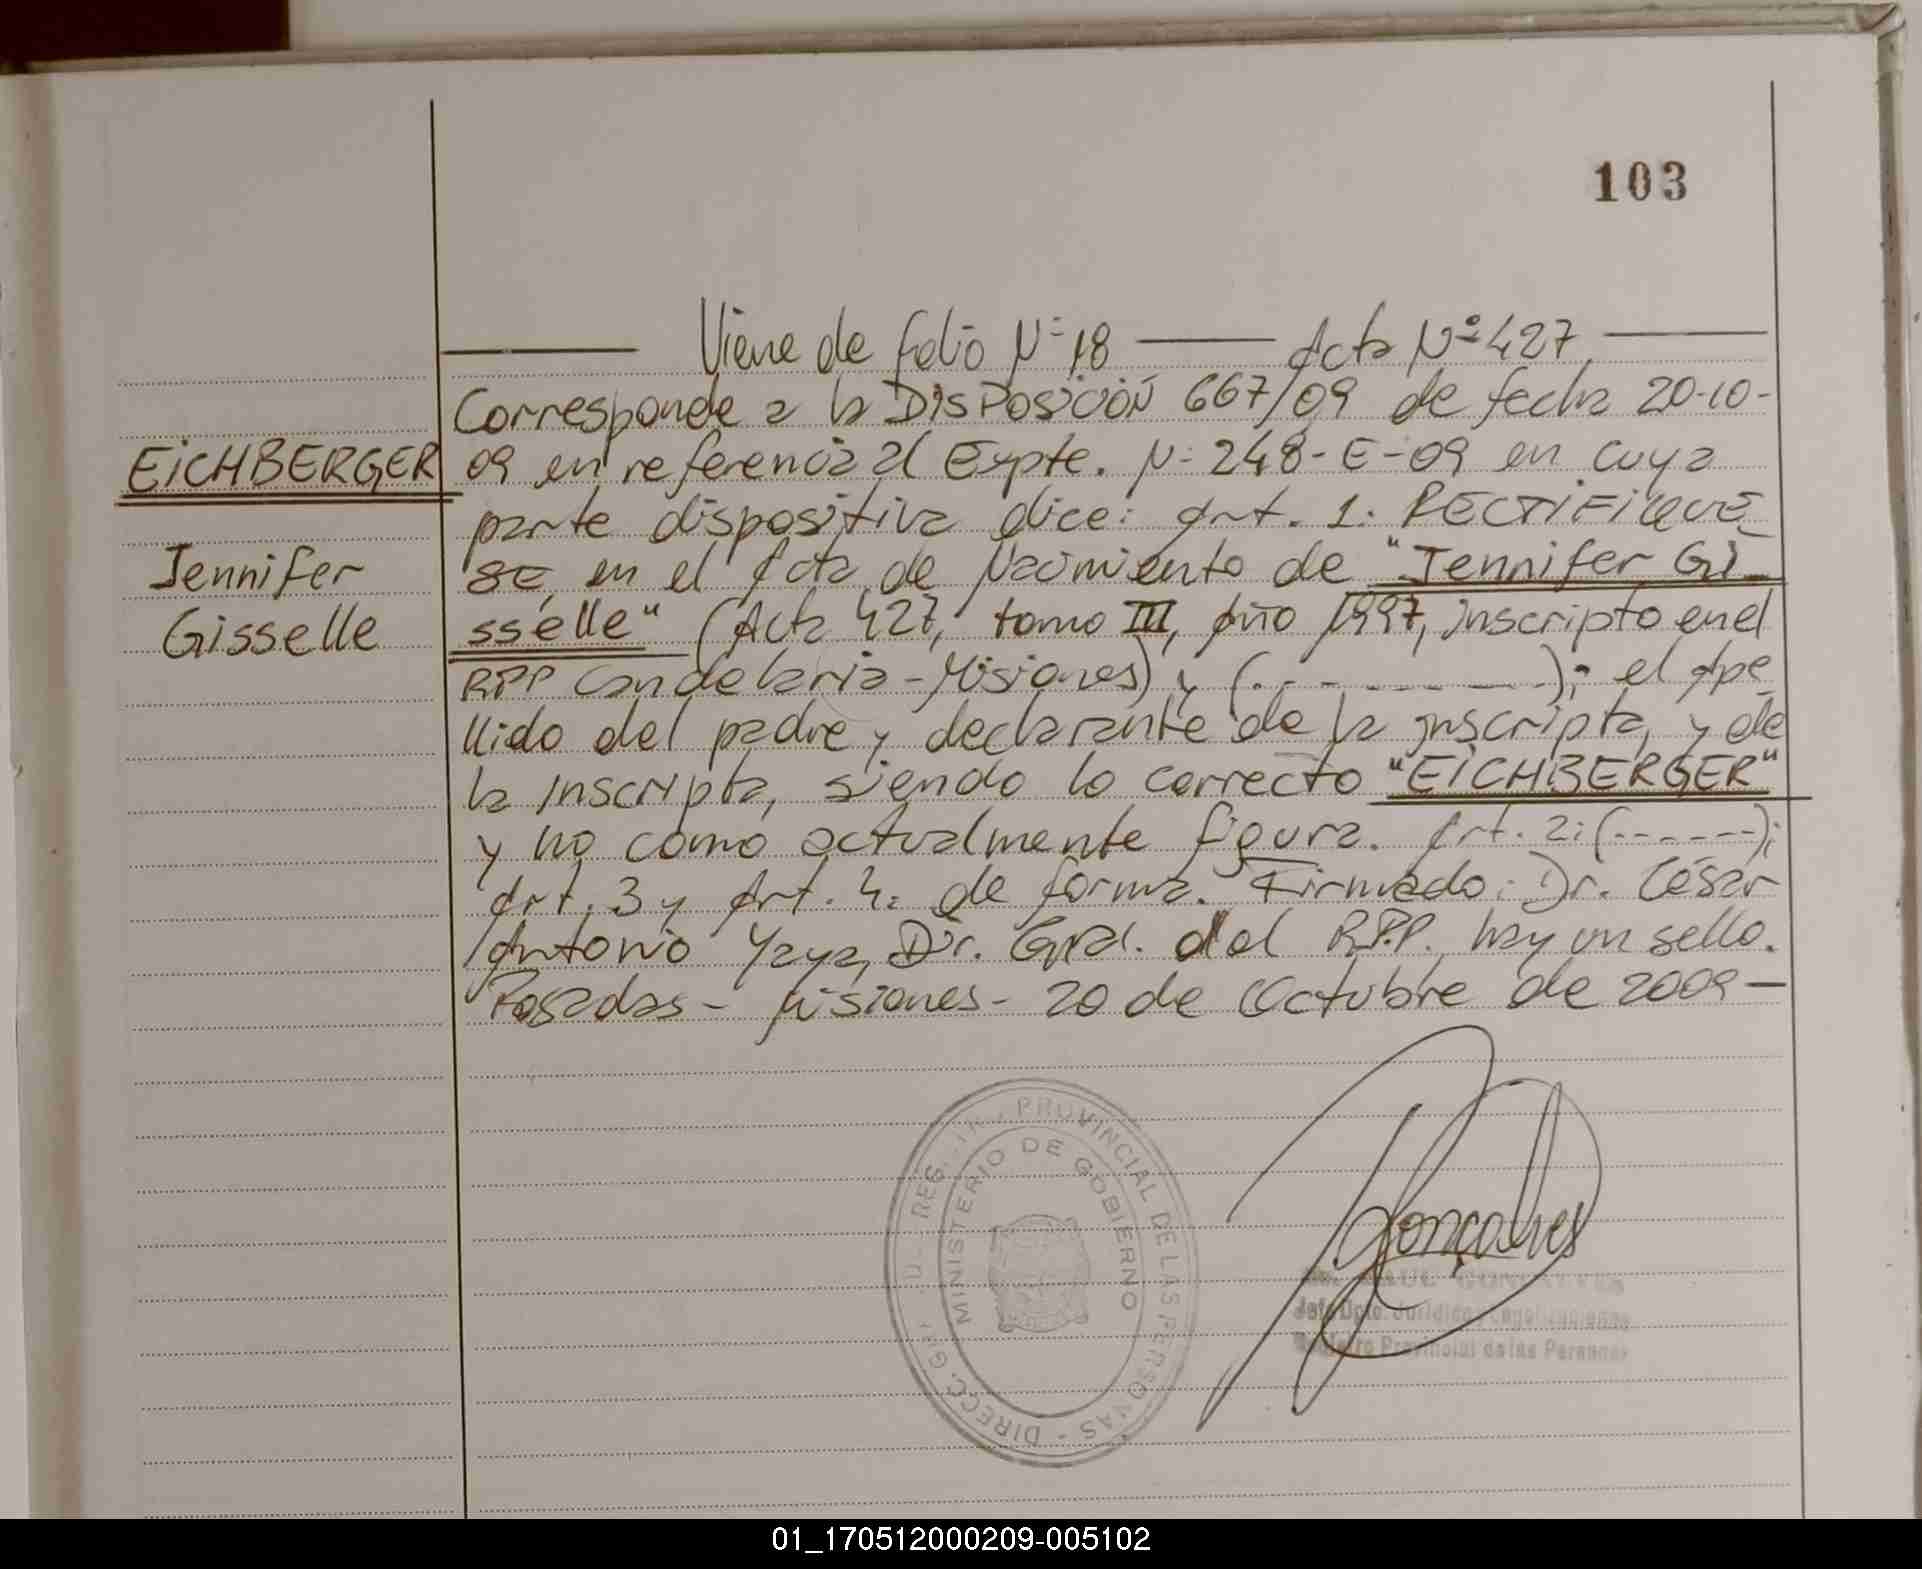 103
Viene de folio Nº 18 — Acta Nº 427.
Corresponde a la DISPOSICIÓN 667/09 de fecha 20-10-
EICHBERGER
09 en referencia al Expte. N: 248-E-09 en cuya
parte dispositiva dice: Art. 1: RECTIFIQUE
Jennifer
SE, en el Acta de Nacimiento de "Jennifer Gi
Gisselle
sselle" (Acta 427, tomo III, Año 1997, inscripto en el
RPP Candelaria - Misiones) y (. - - - - - - - -); el Ape
llido del padre y declarante de la inscripta, y de
la inscripta, siendo lo correcto "EICHBERGER"
y no como actualmente figura. Art. 2: (------);
Art. 3 y Art. 4: de forma. Firmado: Dr. César
Antonio Yaya, Dir. Gral. del R.P.P. hay un sello.
Posadas - Misiones - 20 de Octubre de 2009 —
PROVINCIAL DE LAS PERSONAS - DIRECC. GRAL. DEL REG.
MINISTERIO DE GOBIERNO
Gonçalves
Registro Provincial de las Personas
01_170512000209-005102